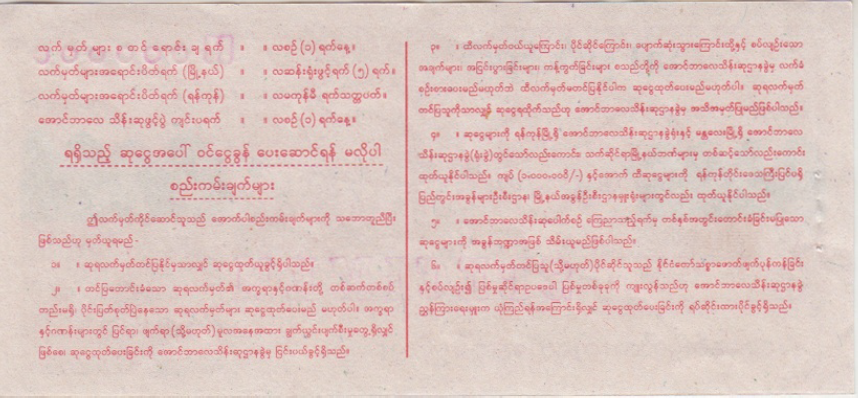 လက် မှတ် များ စ တင် ရောင်း ချ ရက် ။ ။ လစဉ် (၁) ရက်နေ့။
လက်မှတ်များအရောင်းပိတ်ရက် (မြို့နယ်) ။ ။ လဆန်းရုံးဖွင့်ရက် (၅) ရက်။
လက်မှတ်များအရောင်းပိတ်ရက် (ရန်ကုန်) ။ ။ လမကုန်မီ ရက်သတ္တပတ်။
အောင်ဘာလေ သိန်းဆုဖွင့်ပွဲ ကျင်းပရက် ။ ။ လစဉ် (၁) ရက်နေ့။
ရရှိသည့် ဆုငွေအပေါ် ဝင်ငွေခွန် ပေးဆောင်ရန် မလိုပါ
စည်းကမ်းချက်များ
ဤလက်မှတ်ကိုင်ဆောင်သူသည် အောက်ပါစည်းကမ်းချက်များကို သဘောတူညီပြီး
ဖြစ်သည်ဟု မှတ်ယူရမည် -
၁။ ။ ဆုရလက်မှတ်တင်ပြနိုင်မှသာလျှင် ဆုငွေထုတ်ယူခွင့်ရှိပါသည်။
၂။ ။ တင်ပြတောင်းခံသော ဆုရလက်မှတ်၏ အက္ခရာနှင့်ဂဏန်းတို့ တစ်ဆက်တစ်စပ်
တည်းမရှိ၊ ပိုင်းပြတ်စုတ်ပြဲနေသော ဆုရလက်မှတ်များ ဆုငွေထုတ်ပေးမည် မဟုတ်ပါ။ အက္ခရာ
နှင့်ဂဏန်းများတွင် ပြင်ရာ၊ ဖျက်ရာ(သို့မဟုတ်)မူလအနေအထား ချွတ်ယွင်းပျက်စီးမှုတွေ့ရှိလျှင်
ဖြစ်စေ၊ ဆုငွေထုတ်ပေးခြင်းကို အောင်ဘာလေသိန်းဆုဌာနခွဲမှ ငြင်းပယ်ခွင့်ရှိသည်။
၃။ ။ ထီလက်မှတ်ဝယ်ယူကြောင်း၊ ပိုင်ဆိုင်ကြောင်း၊ ပျောက်ဆုံးသွားကြောင်းတို့နှင့် စပ်လျဉ်းသော
အချက်များ၊ အငြင်းပွားခြင်းများ၊ ကန့်ကွက်ခြင်းများ စသည်တို့ကို အောင်ဘာလေသိန်းဆုဌာနခွဲမှ လက်ခံ
စဉ်းစားပေးမည်မဟုတ်ဘဲ ထီလက်မှတ်မတင်ပြနိုင်ပါက ဆုငွေထုတ်ပေးမည်မဟုတ်ပါ။ ဆုရလက်မှတ်
တင်ပြသူကိုသာလျှင် ဆုငွေရထိုက်သည်ဟု အောင်ဘာလေသိန်းဆုဌာနခွဲမှ အသိအမှတ်ပြုမည်ဖြစ်ပါသည်။
၄။ ။ ဆုငွေများကို ရန်ကုန်မြို့ရှိ အောင်ဘာလေသိန်းဆုဌာနခွဲရုံးနှင့် မန္တလေးမြို့ရှိ အောင်ဘာလေ
သိန်းဆုဌာနခွဲ(ရုံးခွဲ)တွင်သော်လည်းကောင်း၊ သက်ဆိုင်ရာမြို့နယ်ဘဏ်များမှ တစ်ဆင့်သော်လည်းကောင်း
ထုတ်ယူနိုင်ပါသည်။ ကျပ် (၁၊၀၀၀၊၀၀၀ိ/-) နှင့်အောက် ထီဆုငွေများကို ရန်ကုန်တိုင်းဒေသကြီးပြင်ပရှိ
ပြည်တွင်းအခွန်များဦးစီးဌာန၊ မြို့နယ်အခွန်ဦးစီးဌာနမှူးရုံးများတွင်လည်း ထုတ်ယူနိုင်ပါသည်။
၅။ ။ အောင်ဘာလေသိန်းဆုပေါက်စဉ် ကြေညာသည့်ရက်မှ တစ်နှစ်အတွင်းတောင်းခံခြင်းမပြုသော
ဆုငွေများကို အခွန်ဘဏ္ဍာအဖြစ် သိမ်းယူမည်ဖြစ်ပါသည်။
၆။ ။ ဆုရလက်မှတ်တင်ပြသူ(သို့မဟုတ်)ပိုင်ဆိုင်သူသည် နိုင်ငံတော်သစ္စာဖောက်ဖျက်ပုန်ကန်ခြင်း
နှင့်စပ်လျဉ်း၍ ပြစ်မှုဆိုင်ရာဥပဒေပါ ပြစ်မှုတစ်ခုခုကို ကျူးလွန်သည်ဟု အောင်ဘာလေသိန်းဆုဌာနခွဲ
ညွှန်ကြားရေးမှူးက ယုံကြည်ရန်အကြောင်းရှိလျှင် ဆုငွေထုတ်ပေးခြင်းကို ရပ်ဆိုင်းထားပိုင်ခွင့်ရှိသည်။